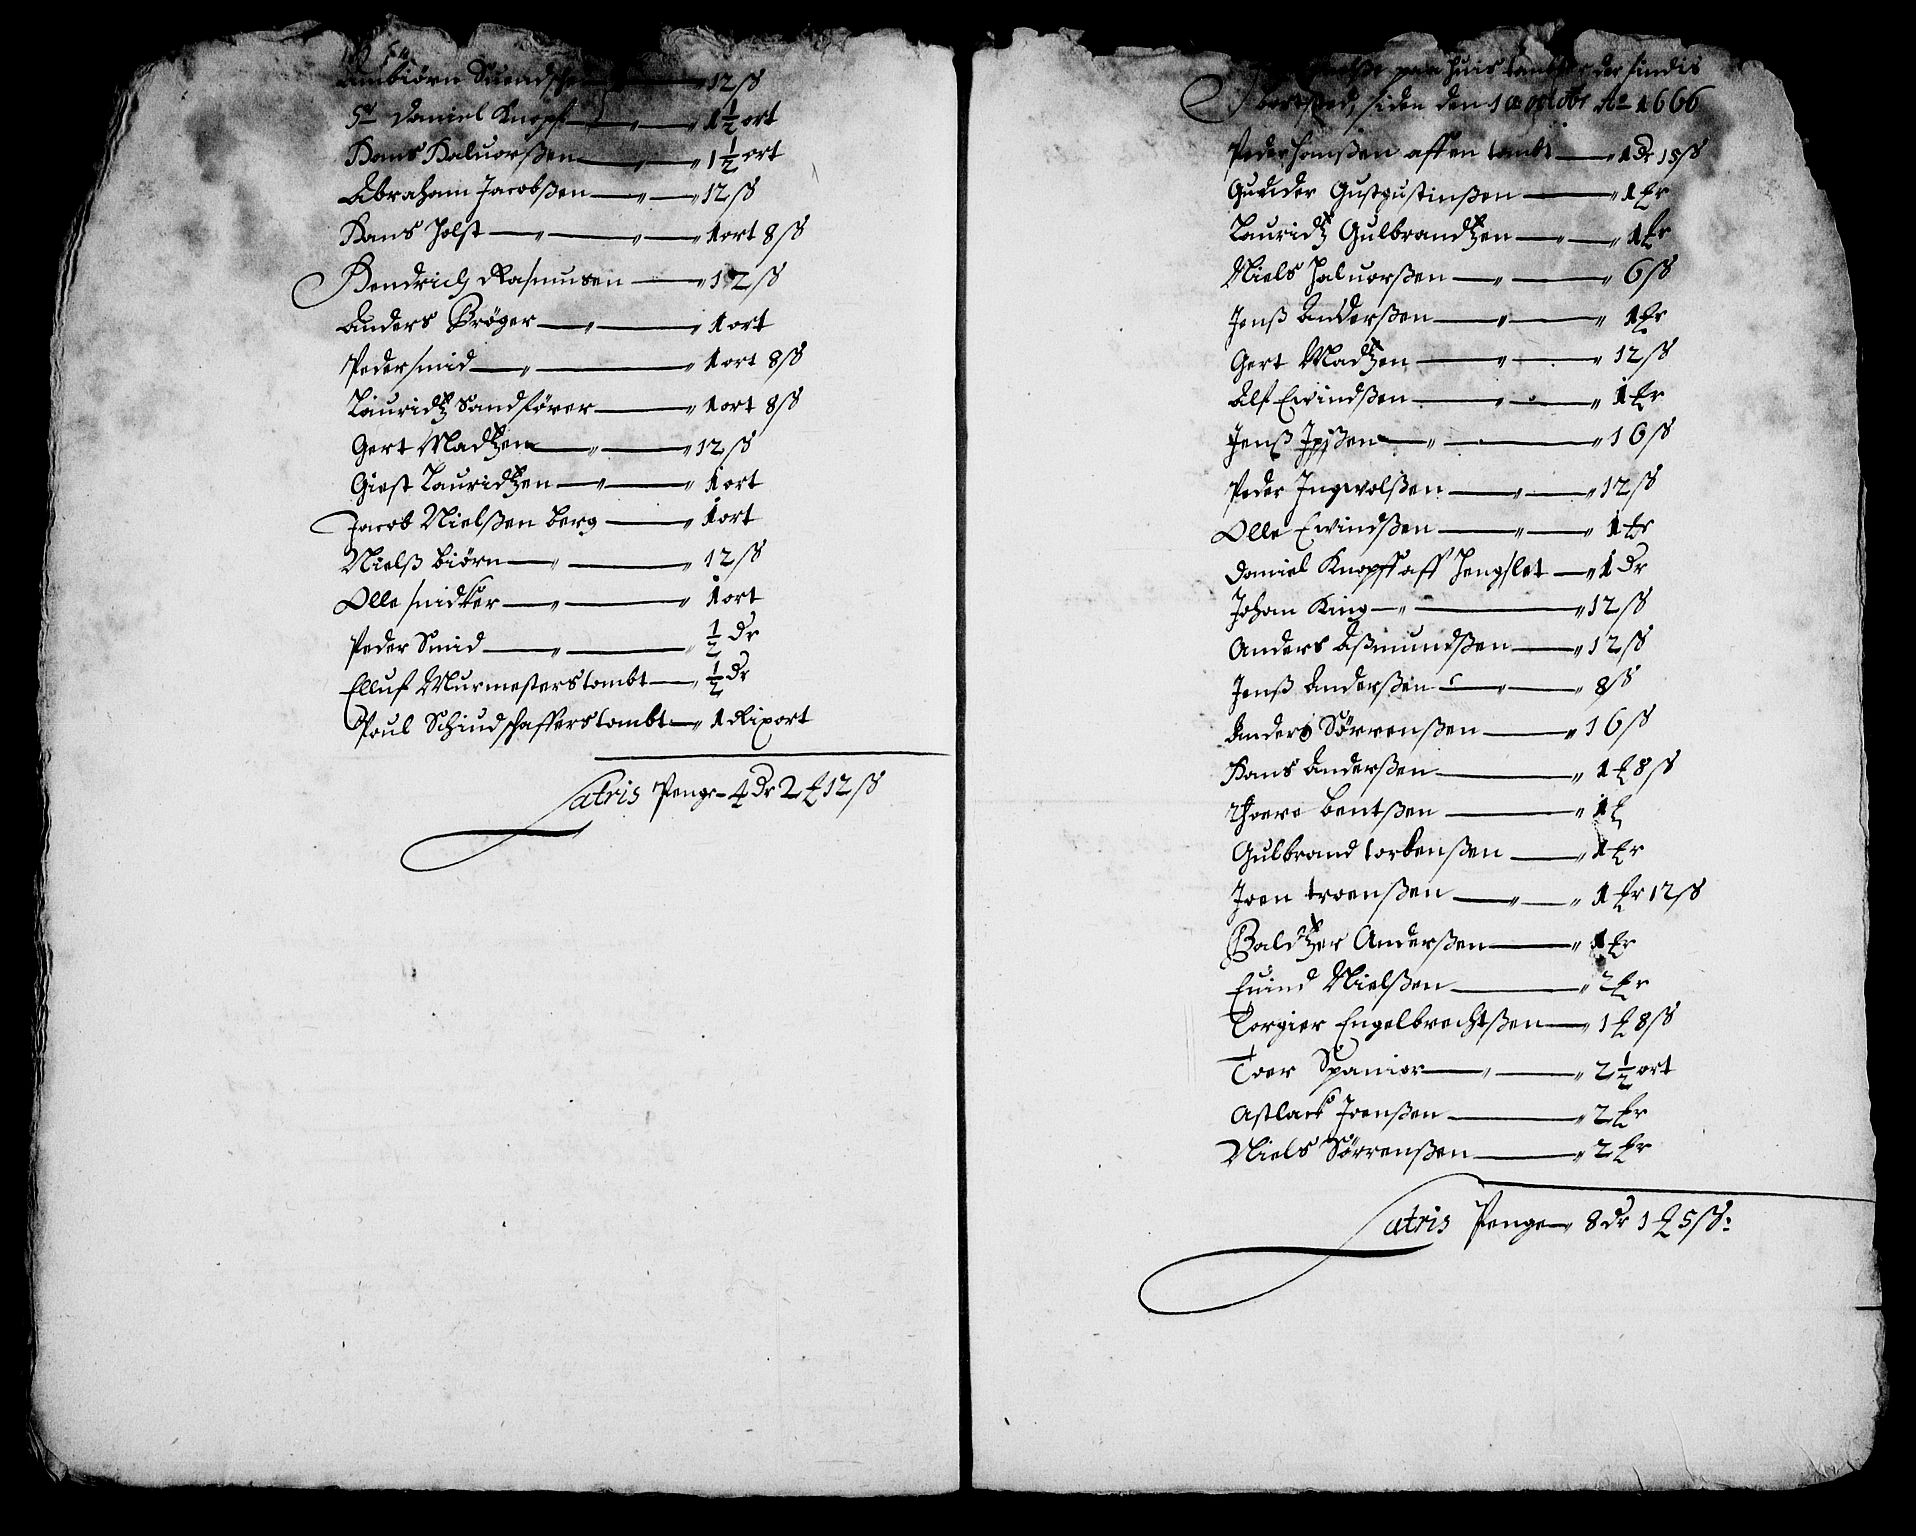 Ambiörn Suendschen — 12 ß
Sr Daniel Knopf — 1½ ort
Hans Haluorßen — 1½ ort
Abraham Jacobßen — 12 ß
Hans Holst — 1 ort 8 ß
Hendrich Rasmusen — 12 ß
Anders Bröger — 1 ort
Peder smid — 1 ort 8 ß
Lauridtz Sandförer — 1 ort 8 ß
Gert Madtzen — 12 ß
Giest Lauridtzen — 1 ort
Jacob Nielßen berg — 1 ort
Nielß biörn — 12 ß
Olle snidker — 1 ort
Peder Smid — ½ dr
Elluf Murmesters tombt — ½ dr
Poul Schiudschaffers tombt — 1 Rixort
Latris Penge - 4 Dr 2 ℔ 12 ß
paa huis tombter der findis
siden den 1 octobr Ao 1666
Peder hanßen aff en tombt — 1 dr 15 ß
Gudder Gustgustinßen — 1 ℔r
Lauridtz Gulbrandtzen — 1 ℔r
Niels Haluorßen — 6 ß
Jenß Anderßen — 1 ℔r
Gert Madtzen — 12 ß
Alf Ewindßen — 1 ℔r
Jenß Jpßen — 16 ß
Peder Ingwolßen — 12 ß
Olle Ewindßen — 1 ℔r
Daniel Knopff aff Hengslet — 1 dr
Johan King — 12 ß
Anders Aßmundßen — 12 ß
Jenß Anderßen — 8 ß
Anders Sörrenßen — 16 ß
Hans Anderßen — 1 ℔ 8 ß
Thoere bentßen — 1 ℔
Gulbrand torbenßen — 1 ℔r
Joen troenßen — 1 ℔r 12 ß
Baldtzer Anderßen — 1 ℔r
Euind Nielßen — 2 ℔r
Torgier Engelbrechtßen — 1 ℔ 8 ß
Toer Spanier — 2½ ort
Astlack Joenßen — 2 ℔r
Niels Sörrenßen — 2 ℔r
Latris Penge — 8 dr 1 ℔ 5 ß: